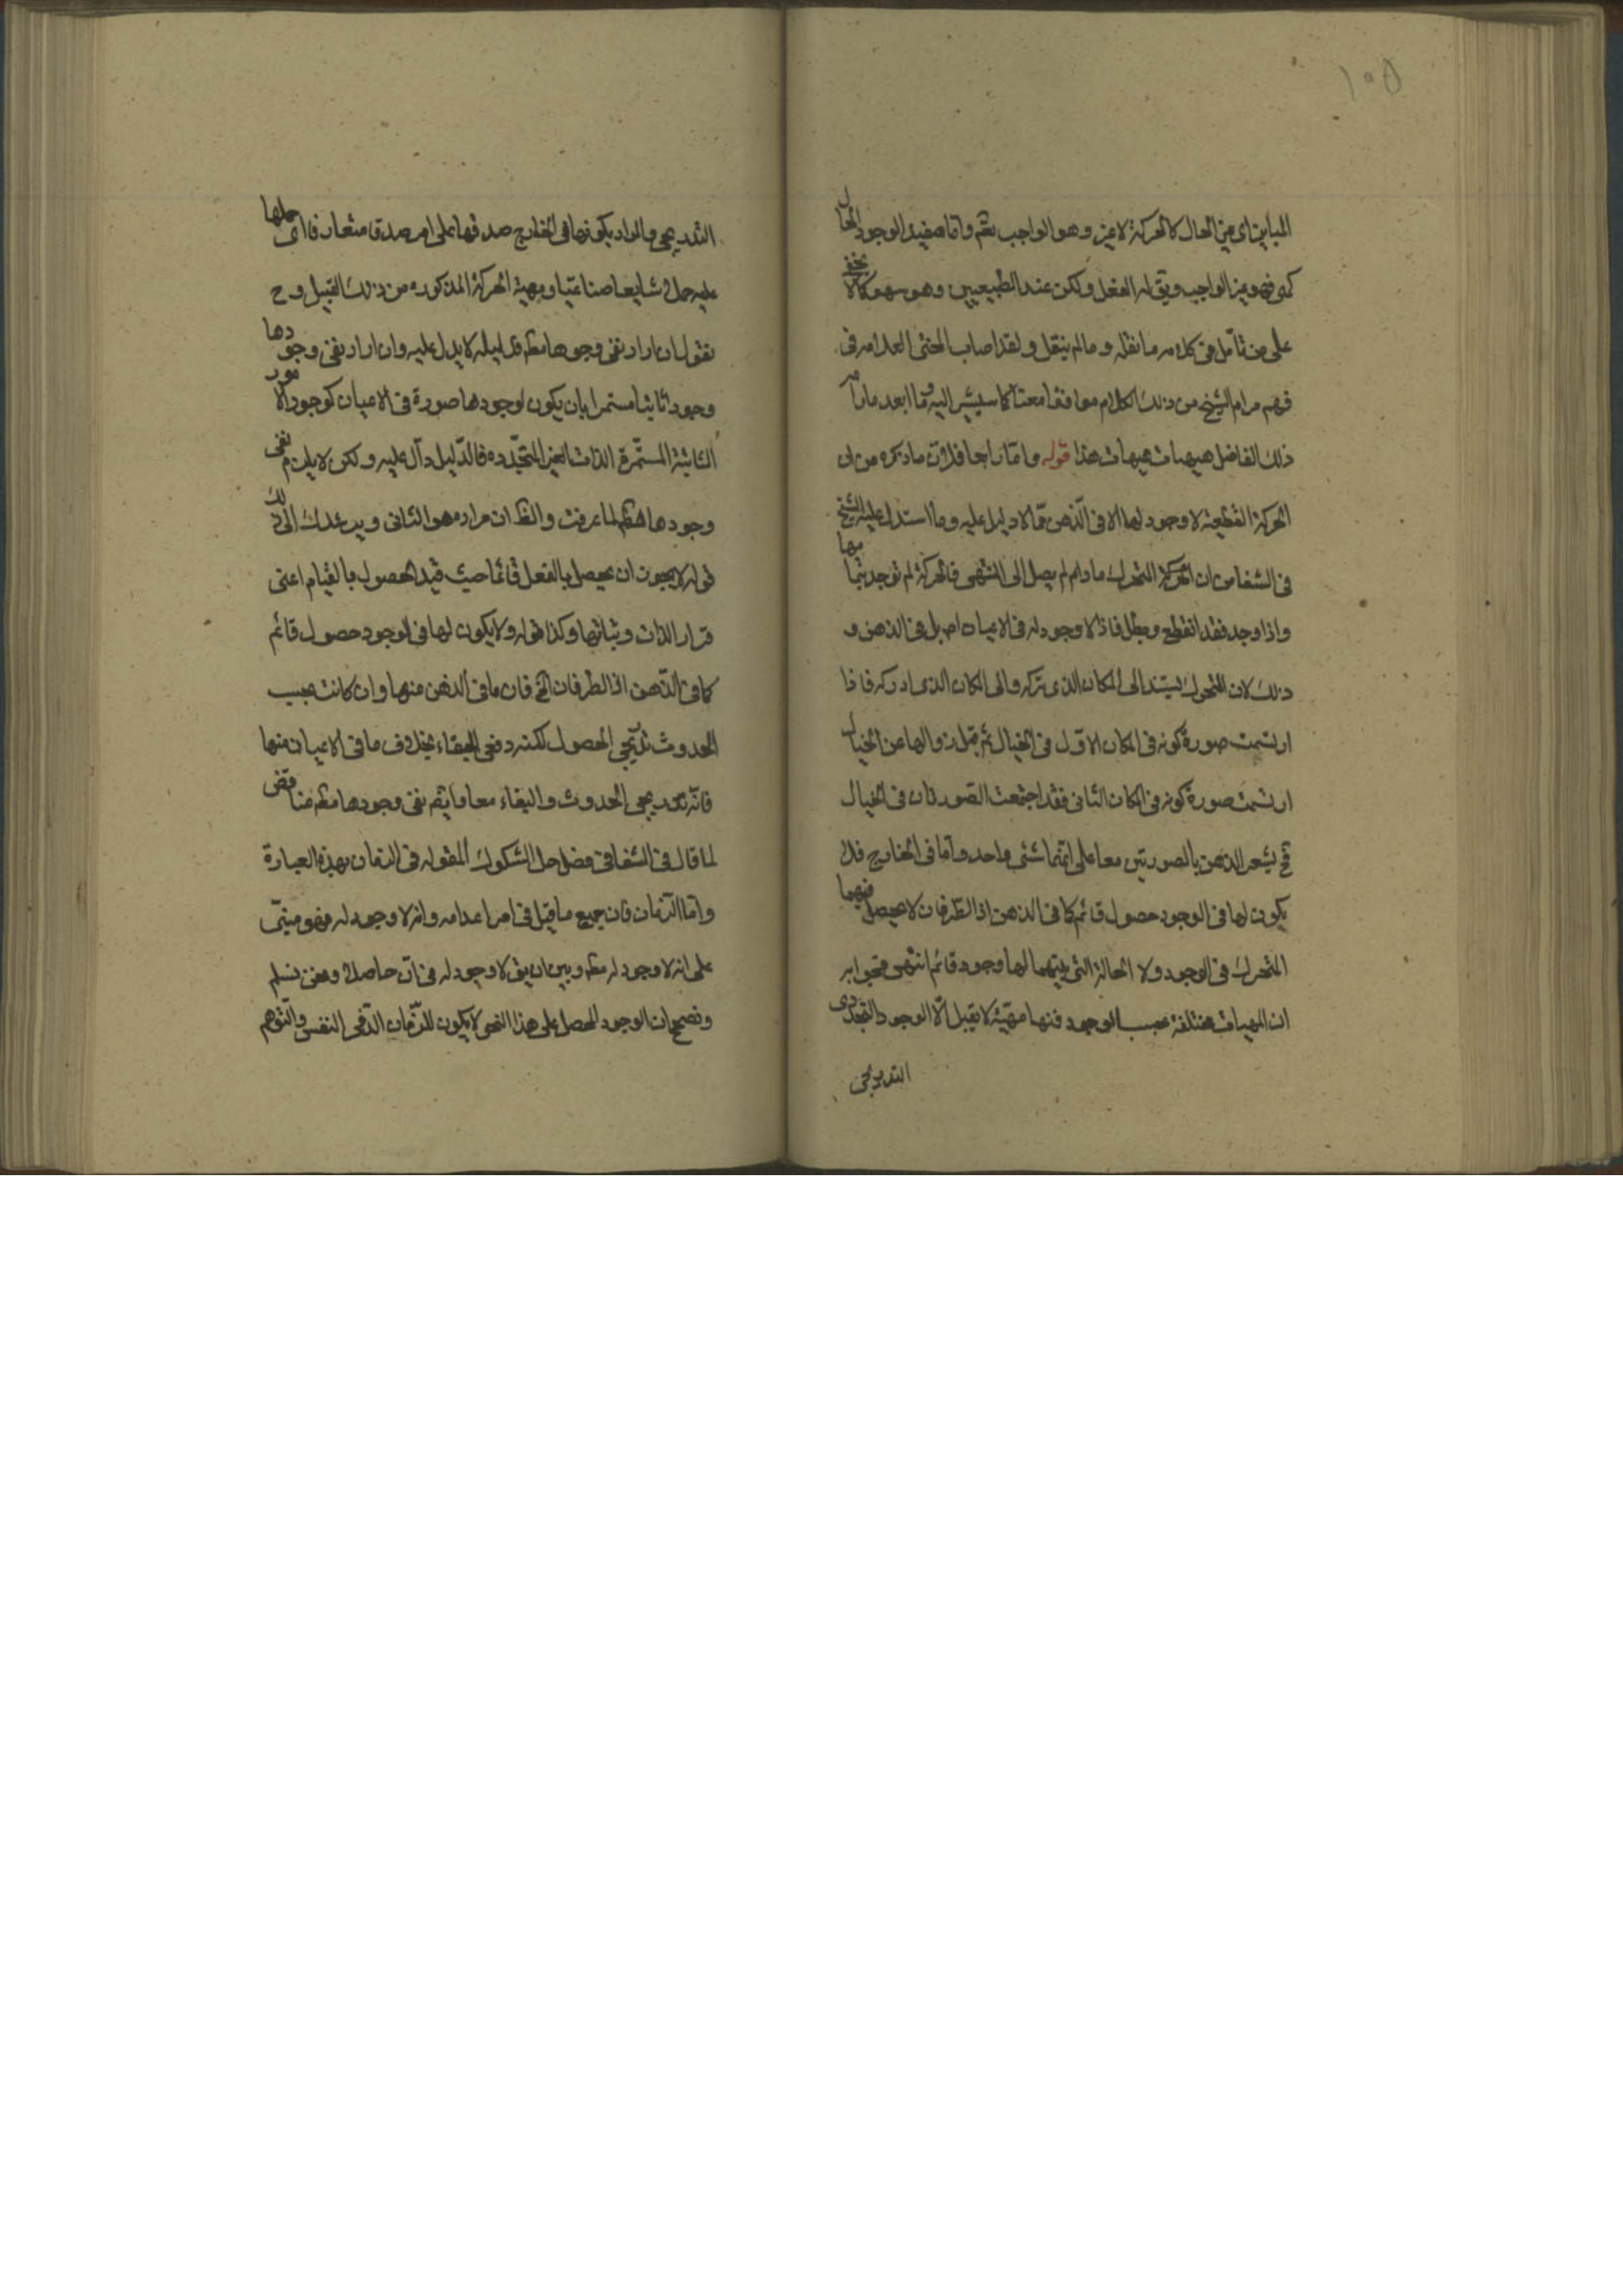 ١٠٥
المباين اى مبين الحال كالحركة لا غير وهو الواجب تعم واما مفيد الوجود الحال
كمى فهو غير الواجب ويق له الفعل ولكن عند الطبيعيين وهو سهو كما لا يخفى
على من تأمل فى كلامه ما نقله وما لم ينقل ولقد اصاب المحشى العلامه فى
فهم مرام الشيخ من ذلك الكلام موافقا معنا كما سيشير اليه وما ابعد ما رامه
ذلك الفاضل هيهات هيهات هذا قوله واما رابعا فلان ما ذكره من ان
الحركة القطعية لا وجود لها الا فى الذهن مما لا دليل عليه وما استدل عليه الشيخ
فى الشفا من ان الحركة المتحرك ما دام لم يصل الى المنتهى فالحركة لم توجد بتمامها
واذا وجد فقد انقطع وبطل فاذا لا وجود له فى الاعيان اصلا بل فى الذهن و
ذلك لان المتحرك يستند الى المكان الذى تركه والى المكان الذى ادركه فاذا
ارتسمت صورة كونه فى المكان الاول فى الخيال ثم قبل زوالها عن الخيال
ارتسمت صورة كونه فى المكان الثانى فقد اجتمعت الصورتان فى الخيال
فح يشعر الذهن بالصورتين معا على انهما شئى واحد واما فى الخارج فلا
يكون لها فى الوجود حصول قائم كما فى الذهن اذ الطرفان لا يحصل فيهما
المتحرك فى الوجود ولا الحالة التى بينهما لها وجود قائم انتهى فجوابه
ان المهيات مختلفة بحسب الوجود فمنها مهية لا تقبل الا الوجود التجددى
التدريجى
التدريجى والمراد بكونها فى الخارج صدقها على امر صدقا متعارفا اى حملها
عليه حملا شايعا صناعيا ومهية الحركة المذكوره من ذلك القبيل وح
نقول ان اراد نفى وجودها مطم فدليله لا يدل عليه وان اراد نفى وجودها
وجودا ثابتا مستمرا بان يكون لوجودها صورة فى الاعيان كوجود الامور
الثابتة المستمرة الذات الغير المتجدده فالدليل دال عليه ولكن لا يلزم نفى
وجودها مطم لما عرفت والظ ان مراده هو الثانى ويرشدك الى ذلك
قوله لا يجوز ان يحصل بالفعل قائما حيث قيد الحصول بالقيام اعنى
قرار الذات وثباتها وكذا قوله ولا يكون لها فى الوجود حصول قائم
كما فى الذهن اذ الطرفان الخ فان ما فى الذهن منها وان كانت بحسب
الحدوث تدريجى الحصول لكنه دفعى البقاء بخلاف ما فى الاعيان منها
فانه تدريجى الحدوث والبقاء معا وايضم نفى وجودها مطم مناقض
لما قال فى الشفا فى فصل حل الشكوك المقوله فى الزمان بهذه العبارة
واما الزمان فان جميع ما قيل فى امر اعدامه وانه لا وجود له فهو مبنى
على انه لا وجود له فى الان وبين ان يق لا وجود له مطم وبين ان يق لا وجود له فى ان حاصلا ونحن نسلم
ونصحح ان الوجود المحصل على هذا النحو لا يكون للزمان الا فى النفس والتوهم